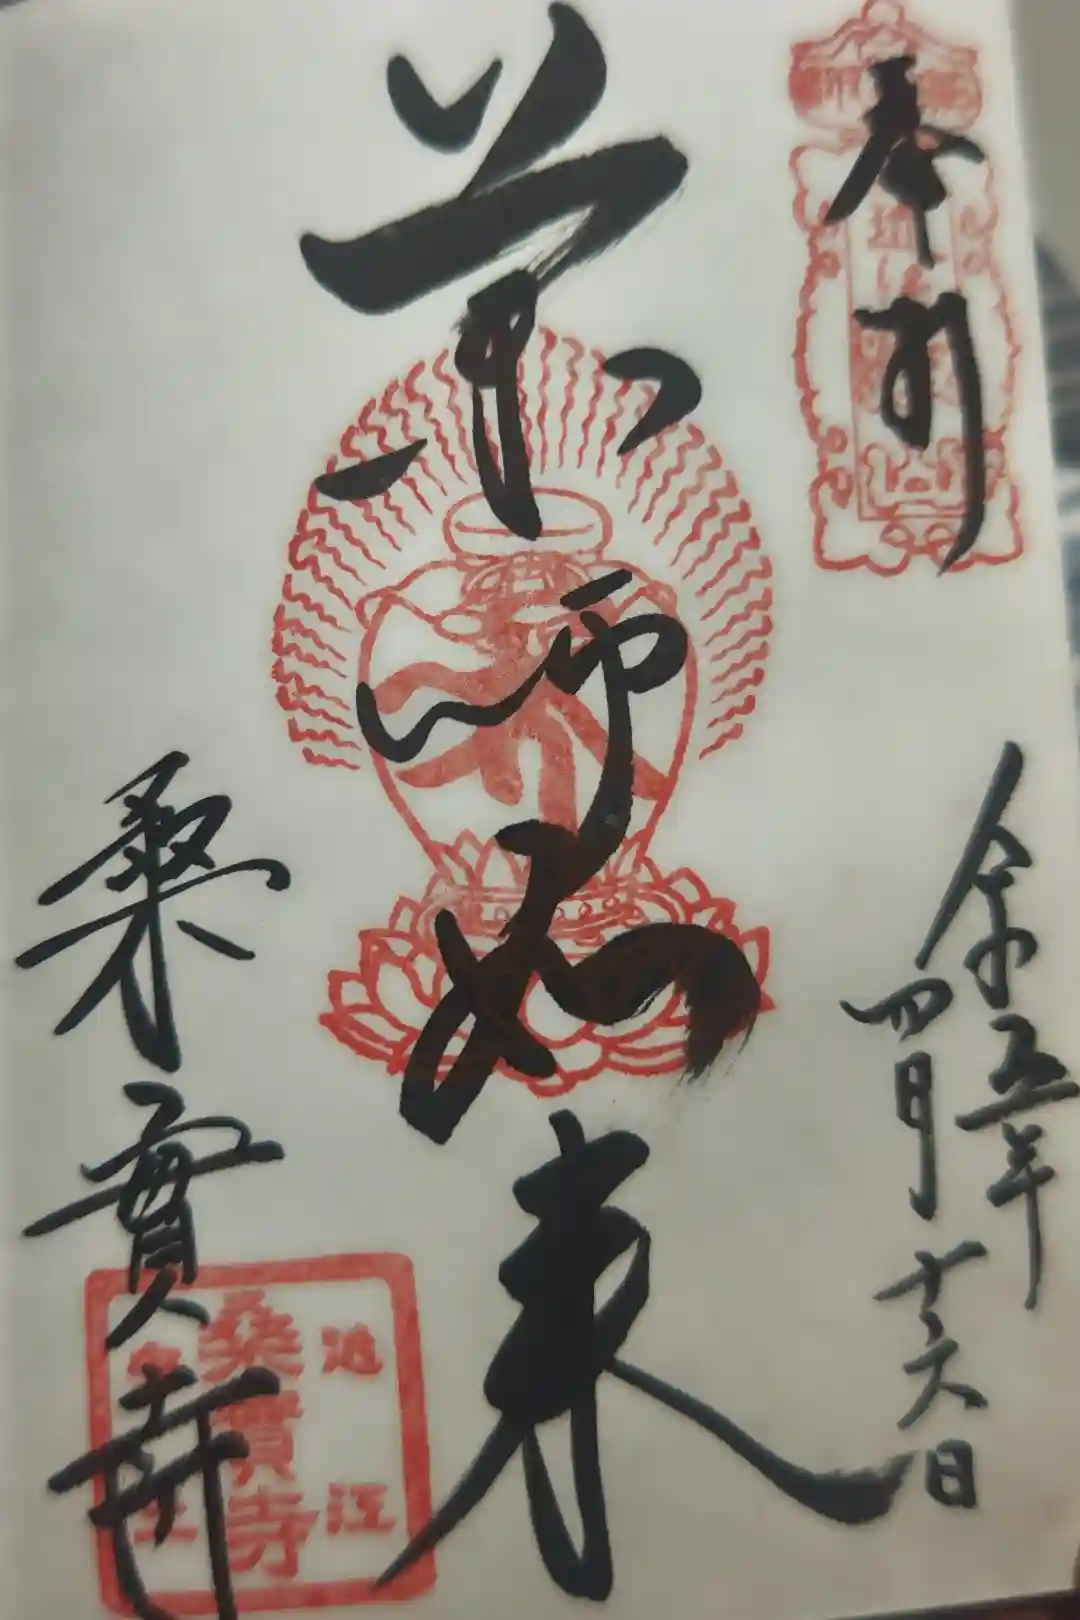 奉拝
令和五年
四月十六日
薬師如来
桑實寺
近江
桑實寺
安土